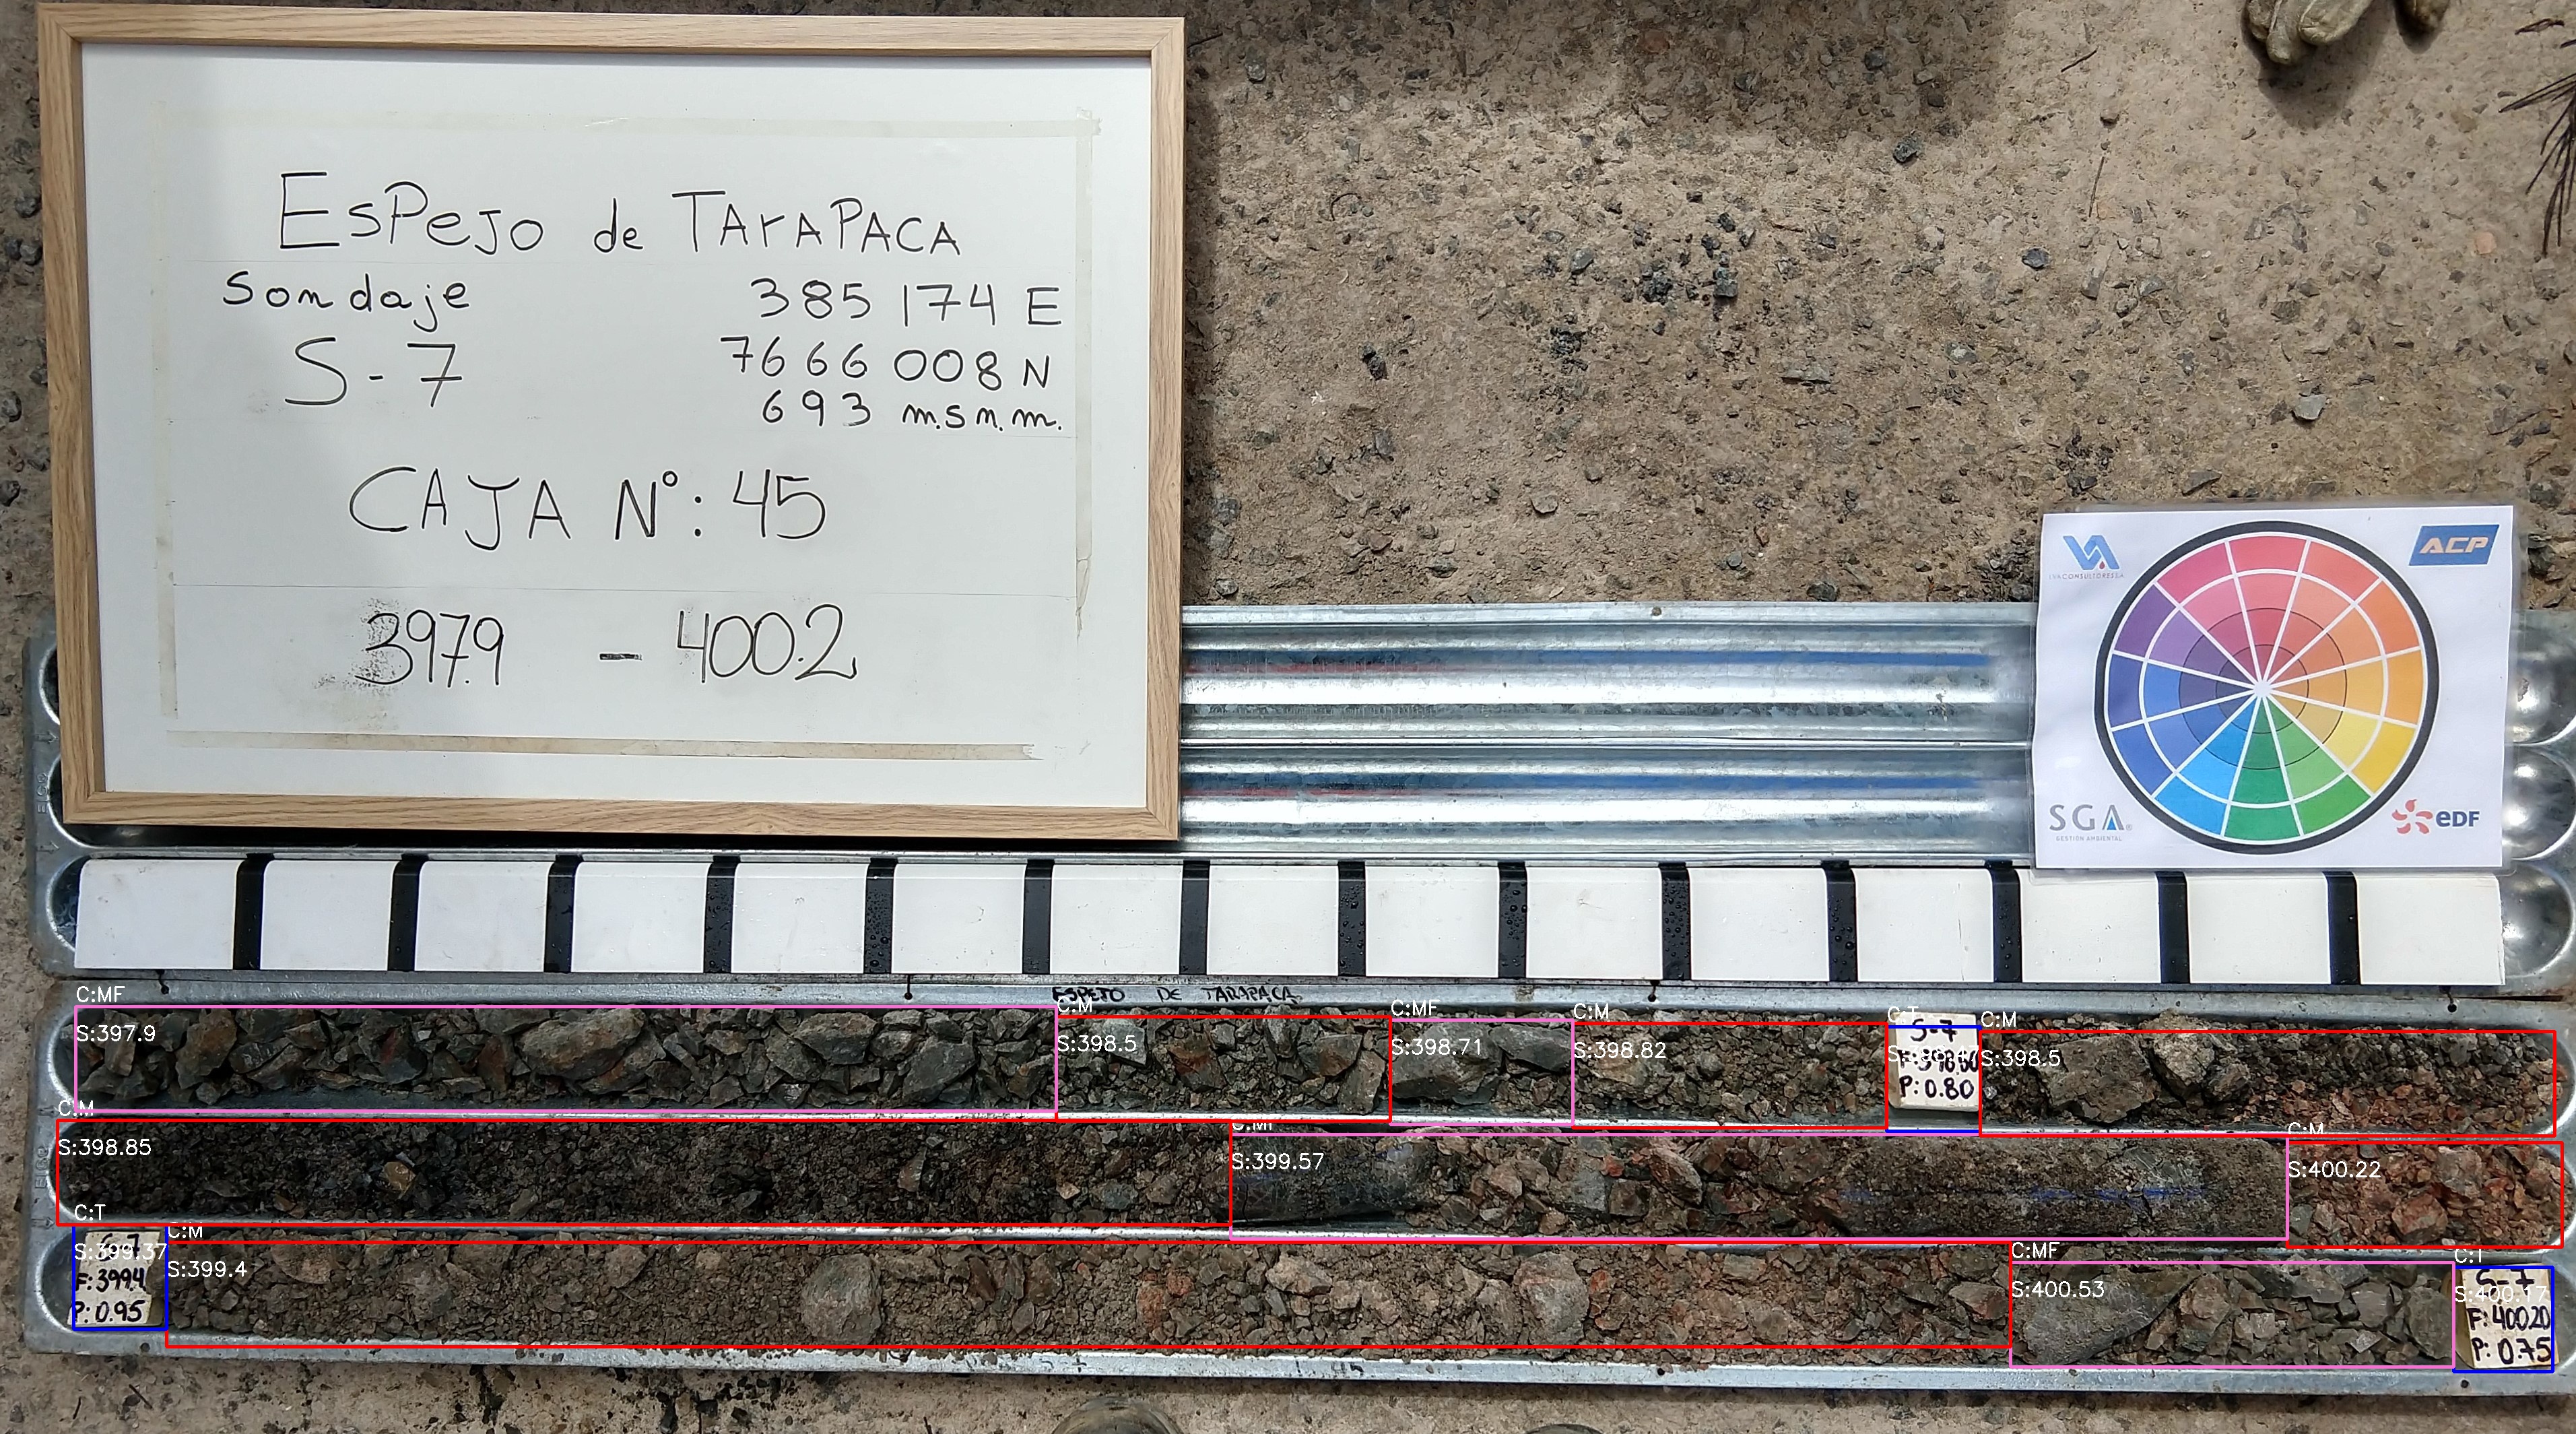 ESPEJO de TARAPACA
Sondaje
385 174 E
S-7
7666 008 N
693 m.s.n.m.
CAJA N°: 45
397.9 - 400.2
VA
ACP
SGA
GESTIÓN AMBIENTAL
eDF
ESPEJO DE TARAPACA
C:MF
S:397.9
C:M
S:398.5
C:MF
S:398.71
C:M
S:398.82
S-7
F:398.50
P:0.80
C:M
S:398.5
C:M
S:398.85
C:MF
S:399.57
C:M
S:400.22
C:T
S:399.37
S-7
F:399.4
P:0.95
C:M
S:399.4
C:MF
S:400.53
C:T
S:400.17
S-7
F:400.20
P:0.75